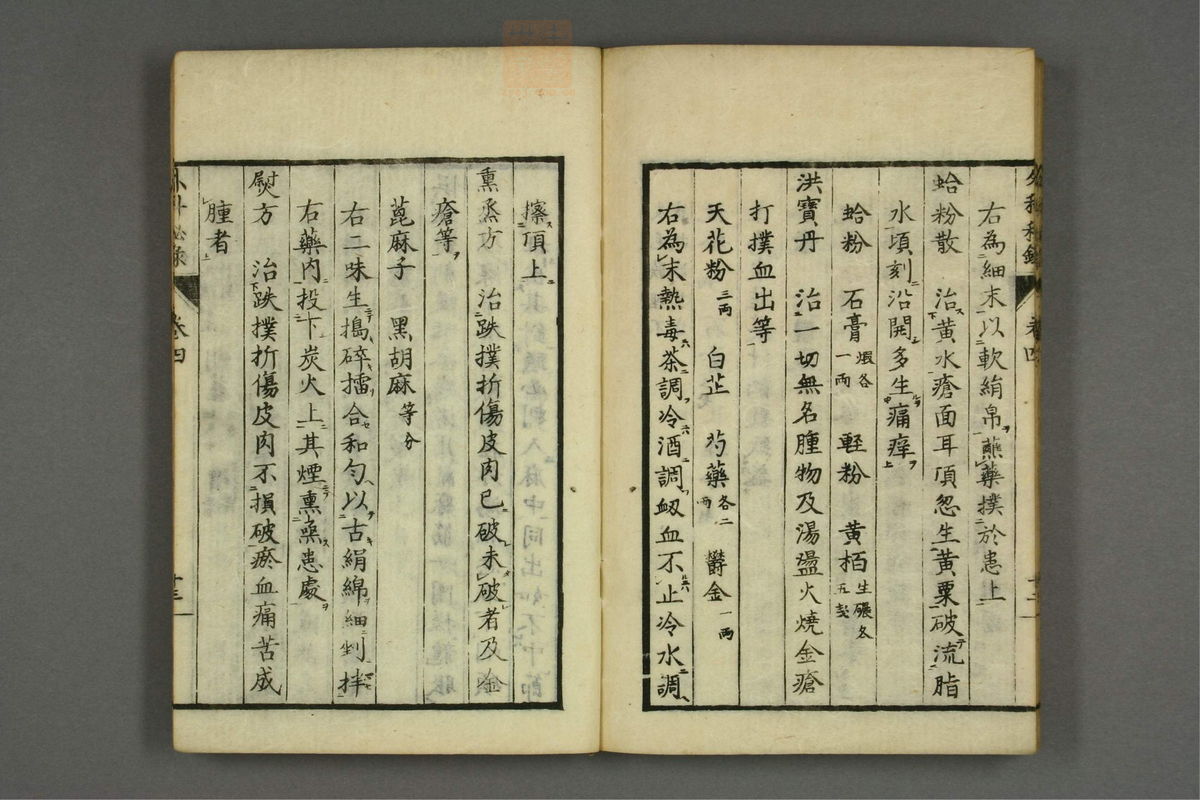 右為細末以軟絹帛蘸藥撲於患上
蛤粉散 治黄水瘡面耳項忽生黄粟破流脂
水頃刻沿開多生痛痒
蛤粉 石膏煅各一兩 輕粉 黄栢生碾各五戔
洪寶丹 治一切無名腫物及湯盪火燒金瘡
打撲血出等
天花粉三兩 白芷 芍藥各二兩 欝金一兩
右為末熱毒茶調冷酒調衂血不止冷水調
擦頂上
熏烝方 治跌撲折傷皮肉已破未破者及金
瘡等
蓖麻子 黒胡麻等分
右二味生搗碎擂合和匀以古絹綿細剉拌
右藥内投下炭火上其煙熏患處
熨方 治跌撲折傷皮肉不損破瘀血痛苦成
腫者
卷四
卷四